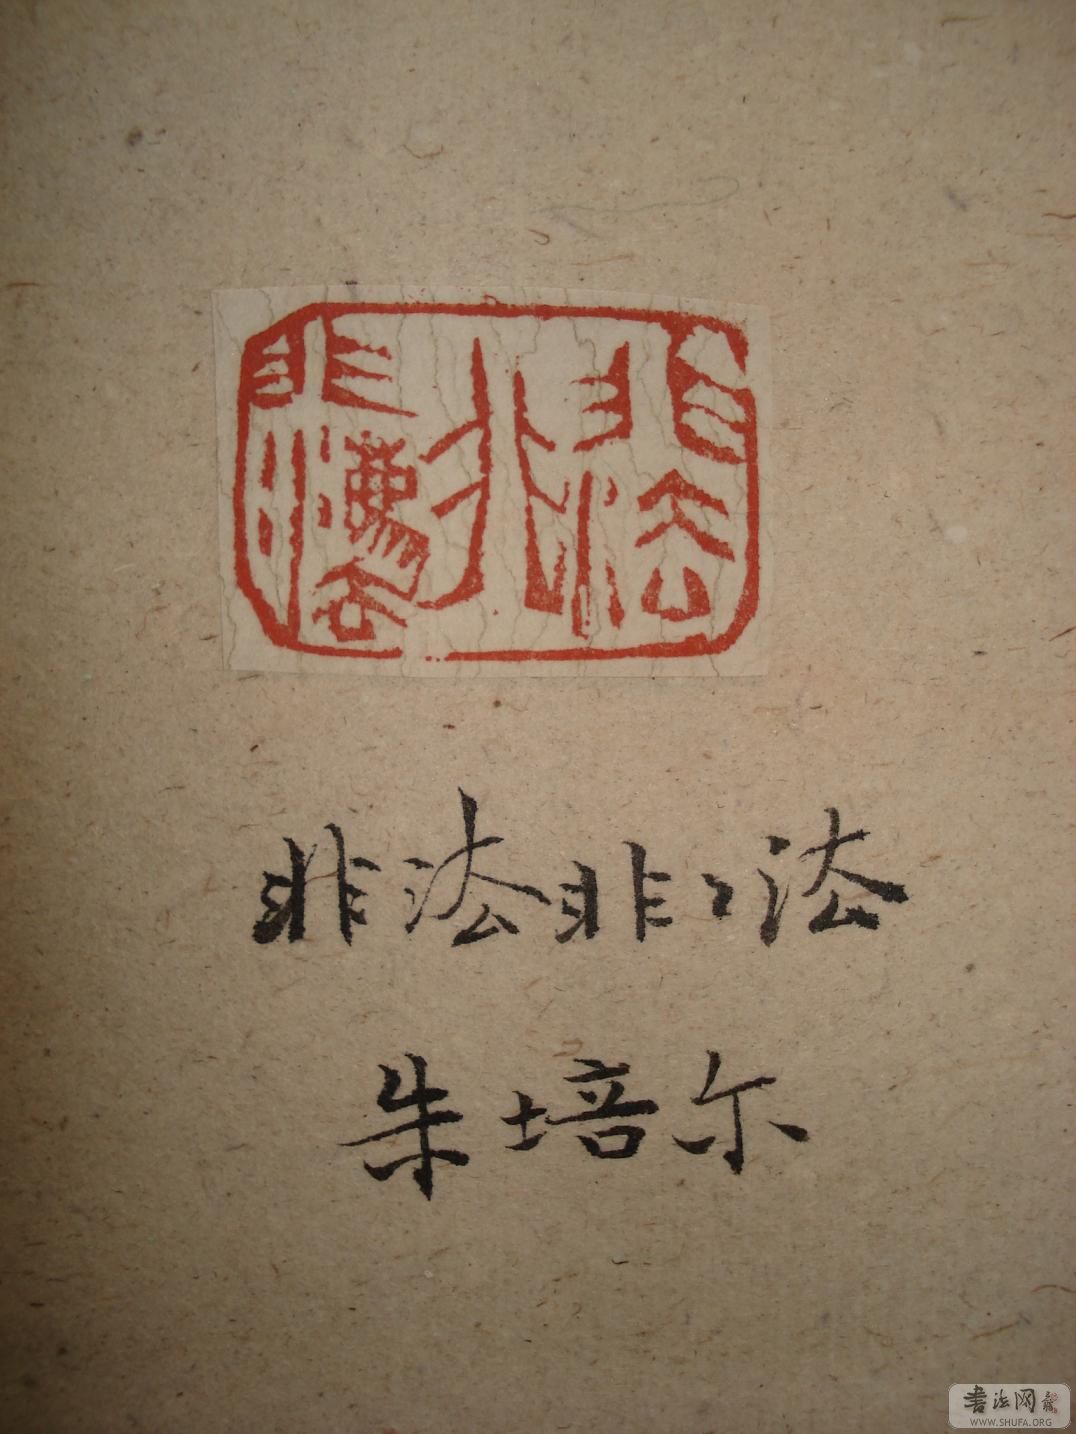 非法
非
非灋
非法非〻法
朱培尔
書法网
WWW.SHUFA.ORG